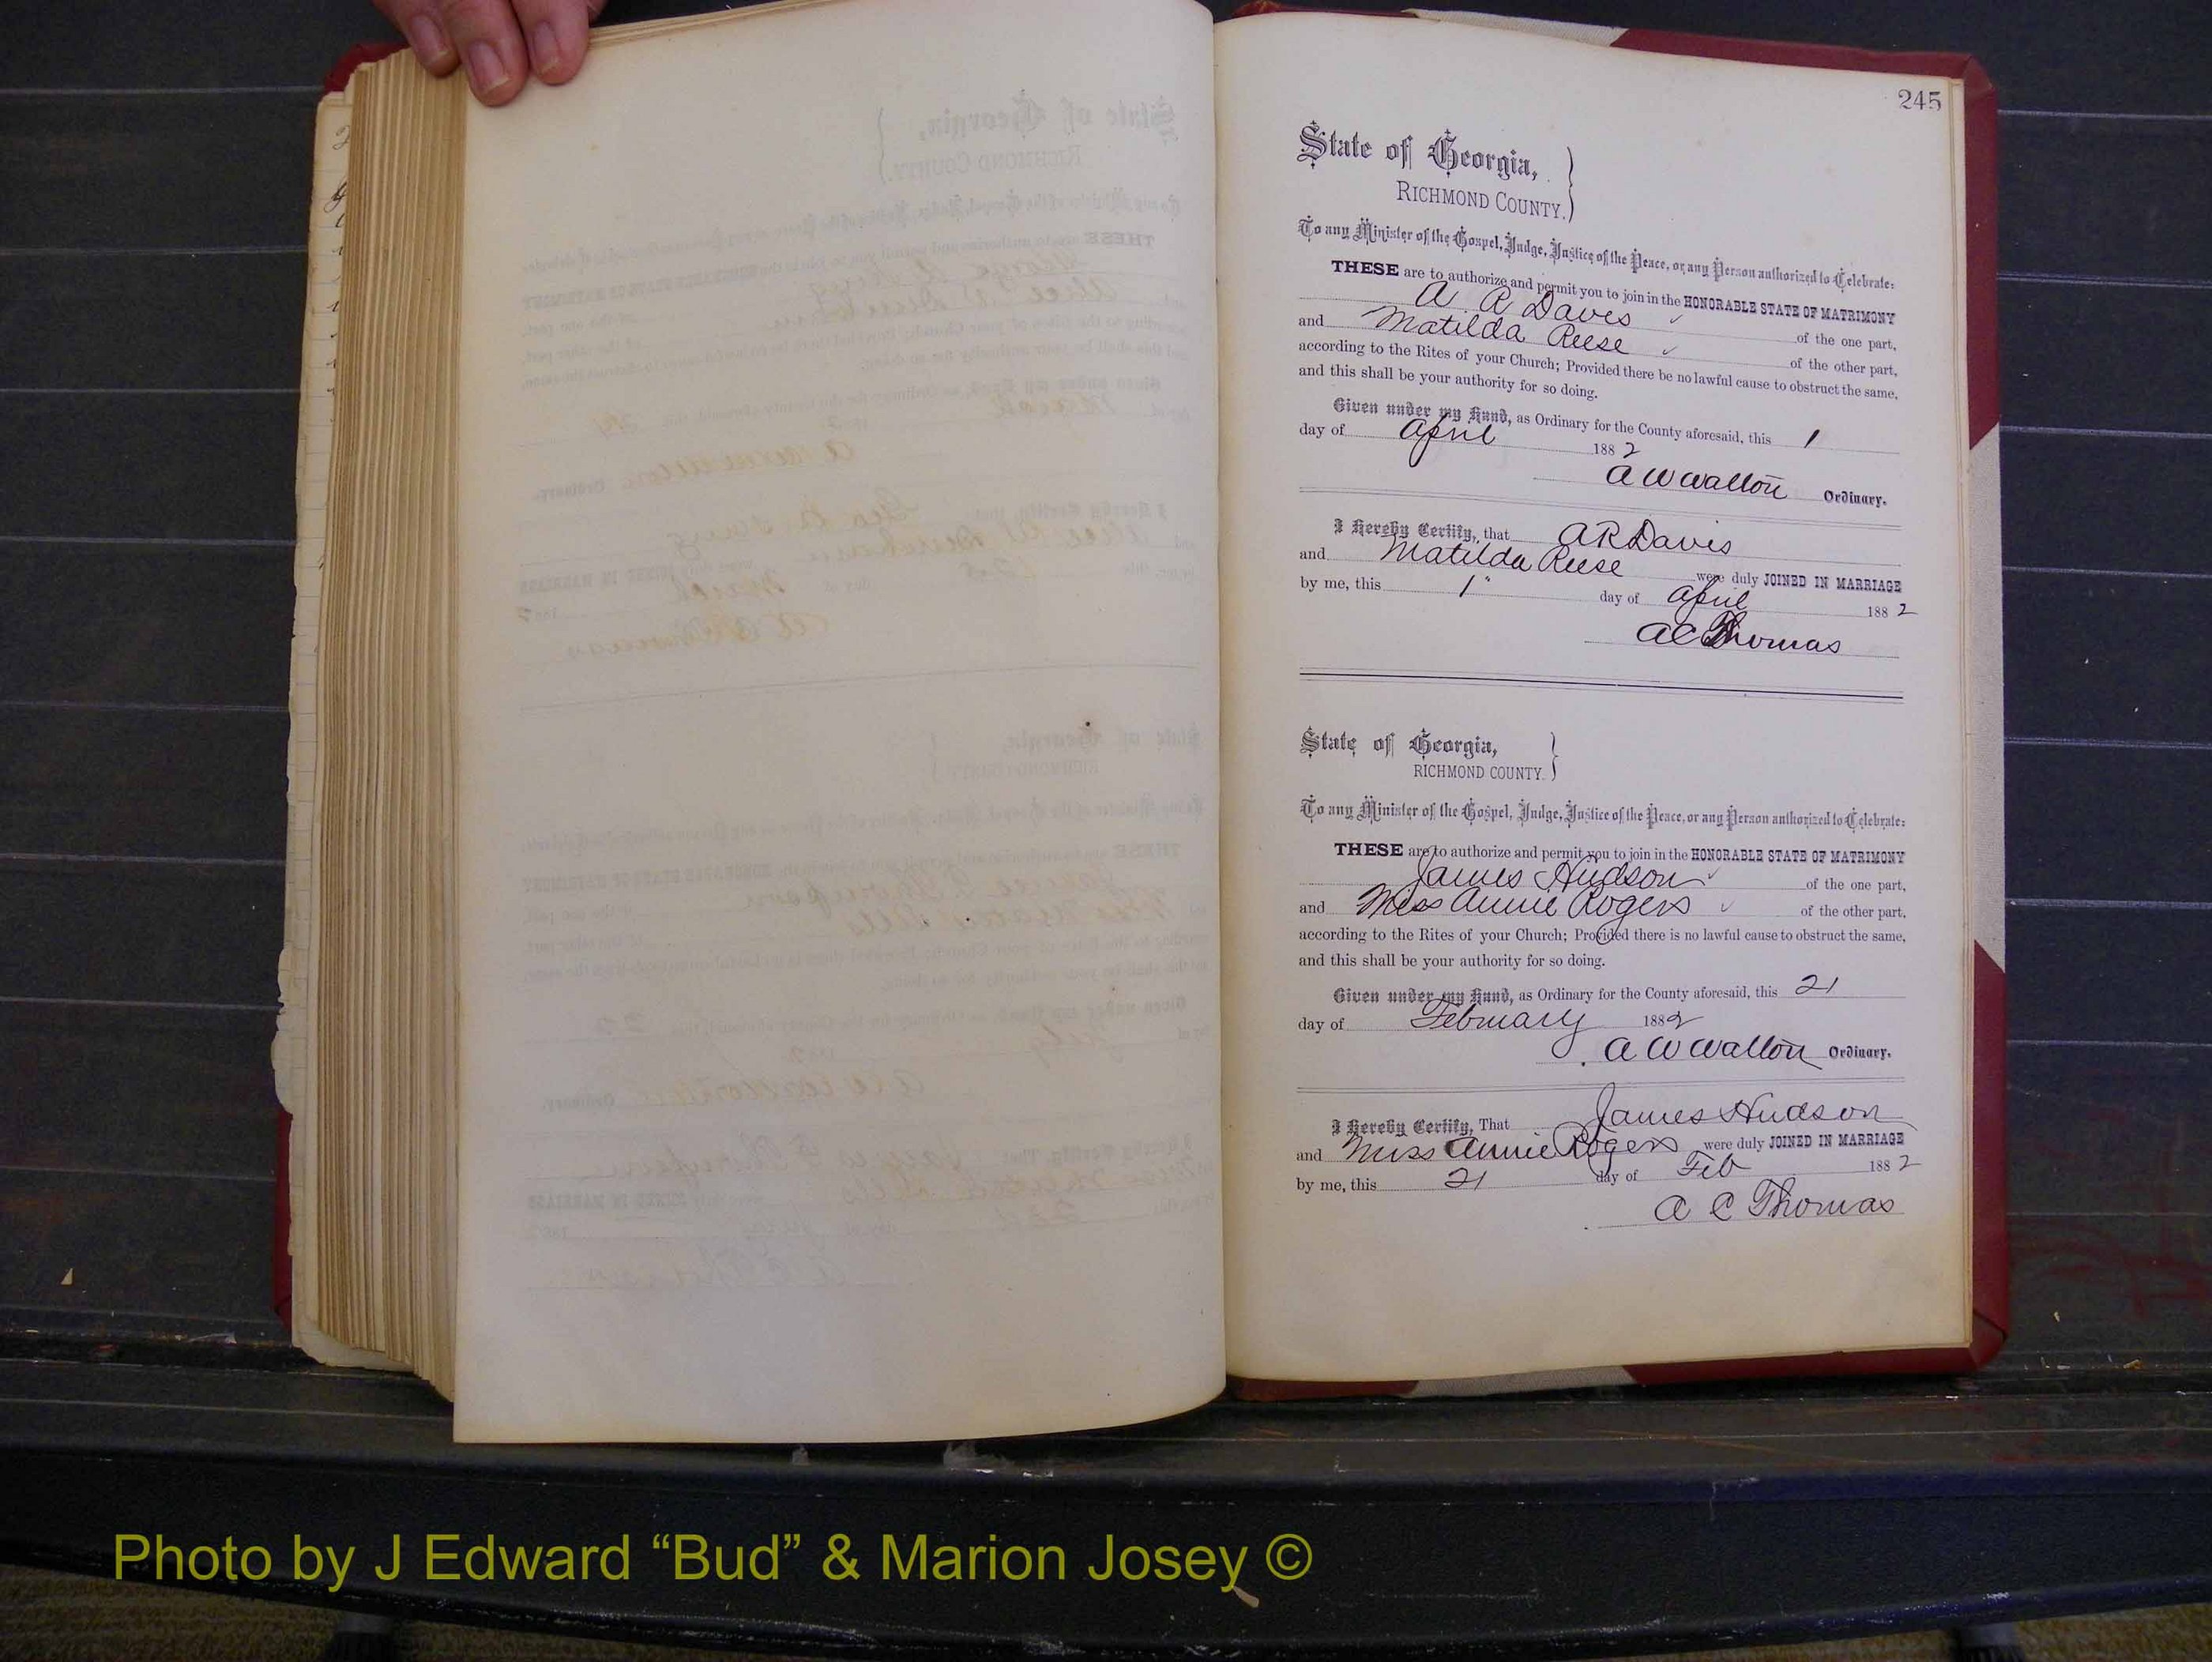 245
State of Georgia,
RICHMOND COUNTY.
To any Minister of the Gospel, Judge, Justice of the Peace, or any Person authorized to Celebrate:
THESE are to authorize and permit you to join in the HONORABLE STATE OF MATRIMONY
A R Davis of the one part,
and Matilda Reese of the other part,
according to the Rites of your Church; Provided there be no lawful cause to obstruct the same,
and this shall be your authority for so doing.
Given under my Hand, as Ordinary for the County aforesaid, this 1
day of April 1882
A W Walton Ordinary.
I Hereby Certify, that A R Davis
and Matilda Reese were duly JOINED IN MARRIAGE
by me, this 1" day of April 1882
A C Thomas
State of Georgia,
RICHMOND COUNTY.
To any Minister of the Gospel, Judge, Justice of the Peace, or any Person authorized to Celebrate:
THESE are to authorize and permit you to join in the HONORABLE STATE OF MATRIMONY
James Hudson of the one part,
and Miss Annie Rogers of the other part,
according to the Rites of your Church; Provided there is no lawful cause to obstruct the same,
and this shall be your authority for so doing.
Given under my Hand, as Ordinary for the County aforesaid, this 21
day of February 1882
A W Walton Ordinary.
I Hereby Certify, That James Hudson
and Miss Annie Rogers were duly JOINED IN MARRIAGE
by me, this 21 day of Feb 1882
A C Thomas
Photo by J Edward “Bud” & Marion Josey ©